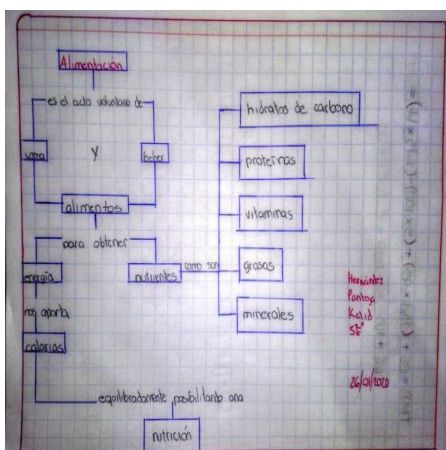 Alimentación
es el acto voluntario de
y
beber
alimentos
para obtener
energía
nutrientes
como son
hidratos de carbono
proteínas
vitaminas
grasas
minerales
nos aporta
calorías
equilibradamente posibilitando una
nutrición
Hernández
Pantoja
Kalid
5E°
26/01/2020